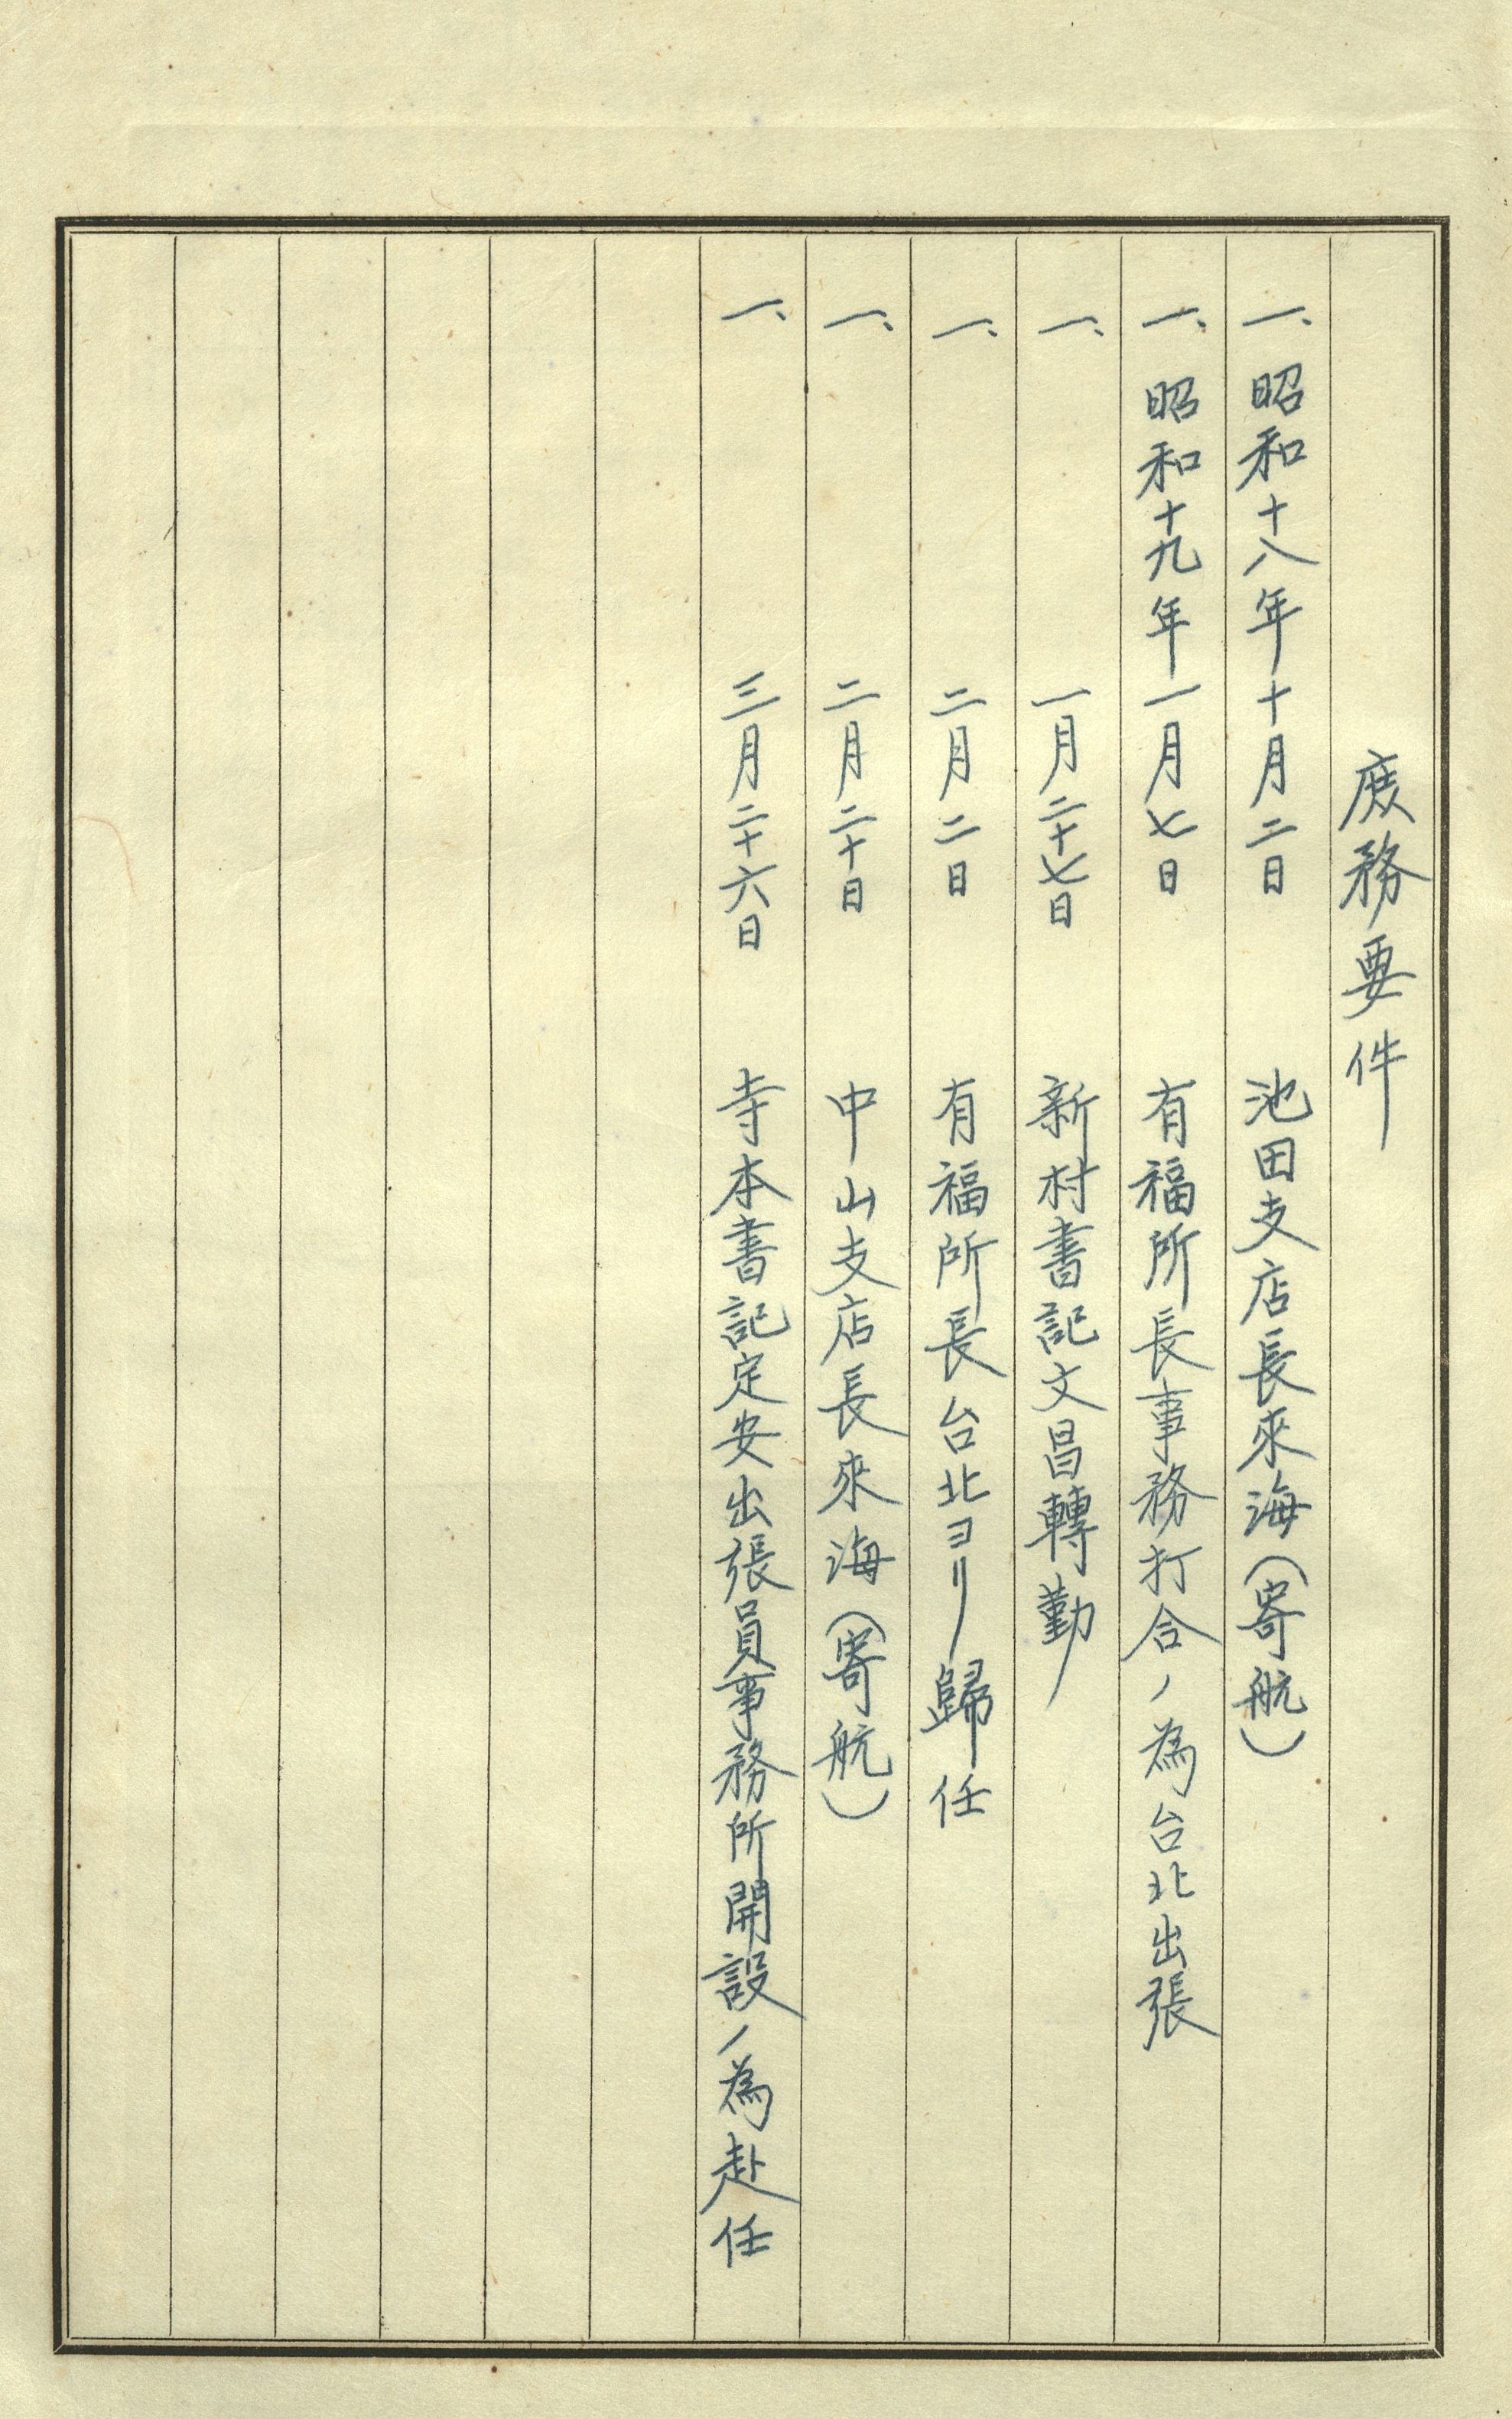 庶務要件
一、昭和十八年十月二日 池田支店長來海（寄航）
一、昭和十九年一月七日 有福所長事務打合ノ為台北出張
一、一月二十七日 新村書記文昌轉勤
一、二月二日 有福所長台北ヨリ歸任
一、二月二十日 中山支店長來海（寄航）
一、三月二十六日 寺本書記定安出張員事務所開設ノ為赴任